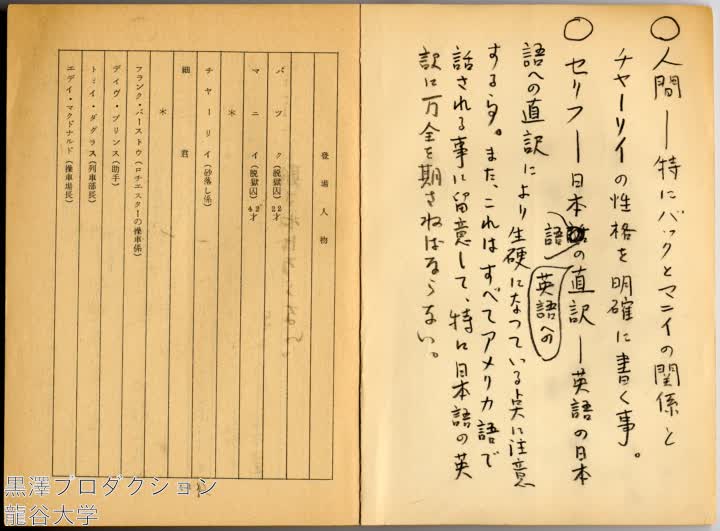 ○人間―特にバックとマニイの関係と
チャーリイの性格を明確に書く事。
○セリフ―日本語の直訳―英語の日本
英語への
語への直訳により生硬になっている点に注意
する事。また、これはすべてアメリカ語で
話される事に留意して、特に日本語の英
訳に万全を期さねばならない。
登場人物
バック(脱獄囚)22才
マニイ(脱獄囚)42才
＊
チャーリイ(砂落し係)
細君
＊
フランク・バーストウ(ロチエスターの操車係)
デイヴ・プリンス(助手)
トミイ・ダグラス(列車部長)
エディ・マクドナルド(操車場長)
黒澤プロダクション
龍谷大学